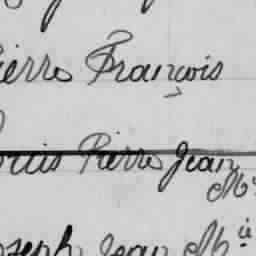 Pierre François
Louis Pierre Jean
Mie
Joseph Jean Mie